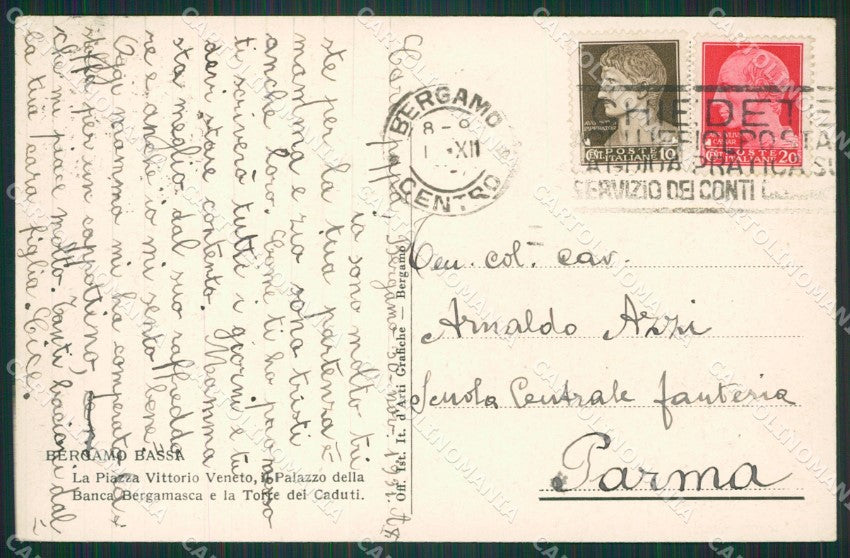 Caro papà, Bergamo 30-nov-1931. A X
io sono molto tri
ste per la tua partenza =
mamma e zio sono tristi
anche loro. Come ti ho promesso
ti scriverò tutti i giorni e tu
devi stare contento. Mamma
sta meglio dal suo raffreddo
re e anche io mi sento bene.
Oggi mamma mi ha comperato la
stoffa per un cappottino,
che mi piace molto. Tanti bacioni dal
la tua cara figlia. Cice.
BERGAMO BASSA
La Piazza Vittorio Veneto, il Palazzo della
Banca Bergamasca e la Torre dei Caduti.
Off. Ist. It. d'Arti Grafiche — Bergamo
BERGAMO
8 -
XII
CENTRO
CENT. POSTE ITALIANE 10
CENT. POSTE ITALIANE 20
CHIEDETE
UFFICI POSTA
GUIDA PRATICA SU
SERVIZIO DEI CONTI
Ten. col. cav.
Arnaldo Azzi
Scuola Centrale fanteria
Parma
CARTOLINOMANIA